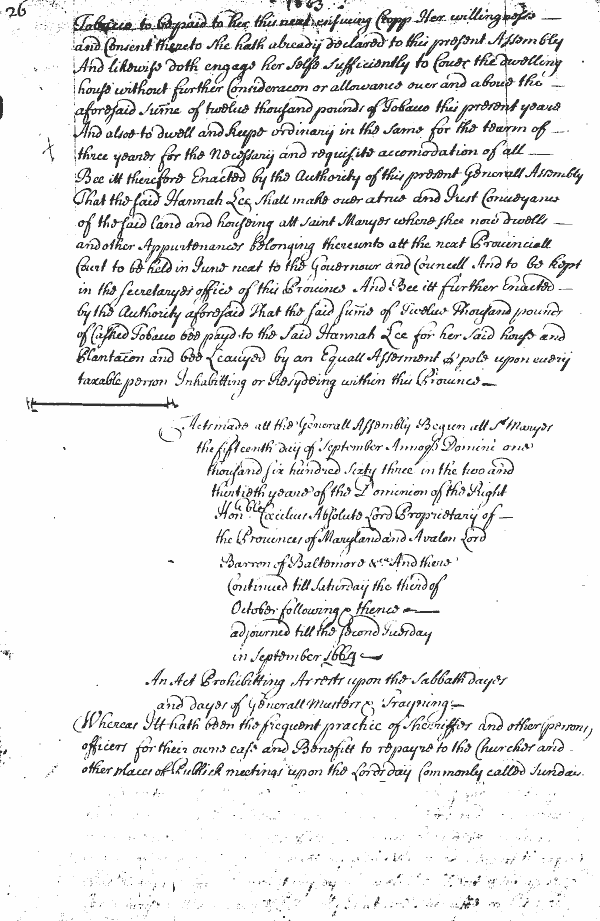 26
1663
Tobacco to be paid to her this next ensuing Cropp Her willingnesse
and Consent thereto she hath already declared to this present Assembly
And likewise doth engage her selfe sufficiently to Cover the dwelling
house without further Consideracon or allowance over and above the
aforesaid sume of twelve thousand pounds of Tobacco this present yeare
And alsoe to dwell and keepe ordinary in the same for the tearm of
three yeares for the Necessary and requisite accomodation of all
Bee itt therefore Enacted by the Authority of this present Generall Assembly
That the said Hannah Lee shall make over a true and Just Conveyance
of the said land and houseing att saint Maryes where shee now dwells
and other Appurtenances belonging thereunto att the next Provinciall
Court to be held in June next to the Governour and Councell And to be kept
in the secretaryes office of this Province And Bee itt further Enacted
by the Authority aforesaid That the said sume of Twelve Thousand pounds
of Casked Tobacco bee payd to the said Hannah Lee for her said house and
Plantacon and bee Leavyed by an Equall Assesment p pole upon every
taxable person Inhabitting or Resydeing within this Province
Acts made att the Generall Assembly Begun att St Maryes
the fifteenth day of September Annoq Domini one
thousand six hundred sixty three in the two and
thirtieth yeare of the Dominion of the Right
Honble Cæcilius Absolute Lord Proprietary of
the Provinces of Maryland and Avalon Lord
Barron of Baltemore &ca And there
Continued till Saturday the third of
October following & thence
adjourned till the second Tuesday
in September 1664
An Act Prohibitting Arrests upon the Sabbath dayes
and dayes of Generall Musters & Trayning
Whereas Itt hath been the frequent practice of Sherriffes and other (persons)
officers for their owne ease and Benefitt to repayre to the Churches and
other places of Publick meetings upon the Lords day Commonly called Sunday